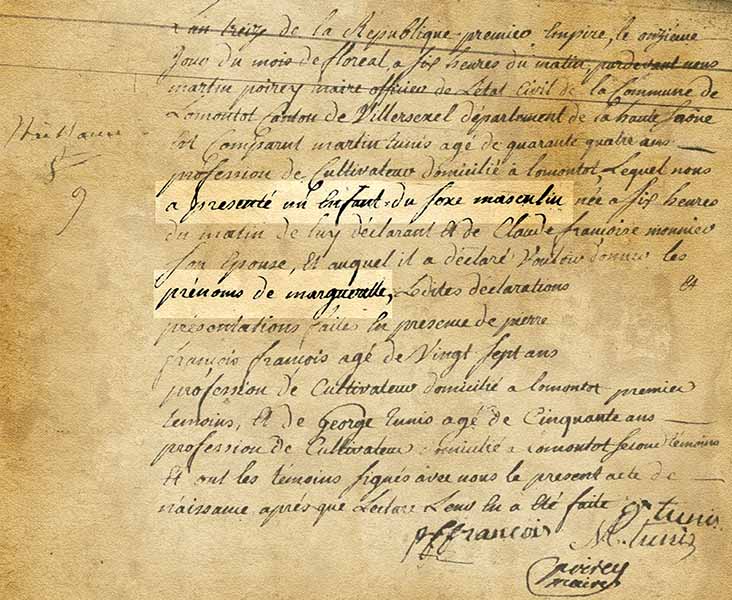 L'an treize de la Republique premier Empire, le onzieme
Jour du mois de floreal, a six heures du matin, pardevant nous
martin poirey maire officier de L'état Civil de la Commune de
Lomontot Canton de Villersexel département de la haute Saône
Est Comparut martin tunis agé de quarante quatre ans
profession de Cultivateur domicilié à lomontot Lequel nous
a presenté un Enfant du sexe masculin née a six heures
du matin de luy déclarant Et de Claude francoise monnier
Son Epouse, Et auquel il a déclaré Vouloir donner les
prénoms de marguerilte, Lesdites déclarations Et
présentations faites En presence de pierre
françois françois agé de Vingt Sept ans
profession de Cultivateur domicilié a lomontot premier
temoins, Et de George tunis agé de Cinquante ans
profession de Cultivateur domicilié a Lomontot second témoins
Et ont les témoins signés avec nous le present acte de
naissance après que Lecture Leur En a Eté faite
9
pf francois
G tunis
M. tunis
poirey
maire